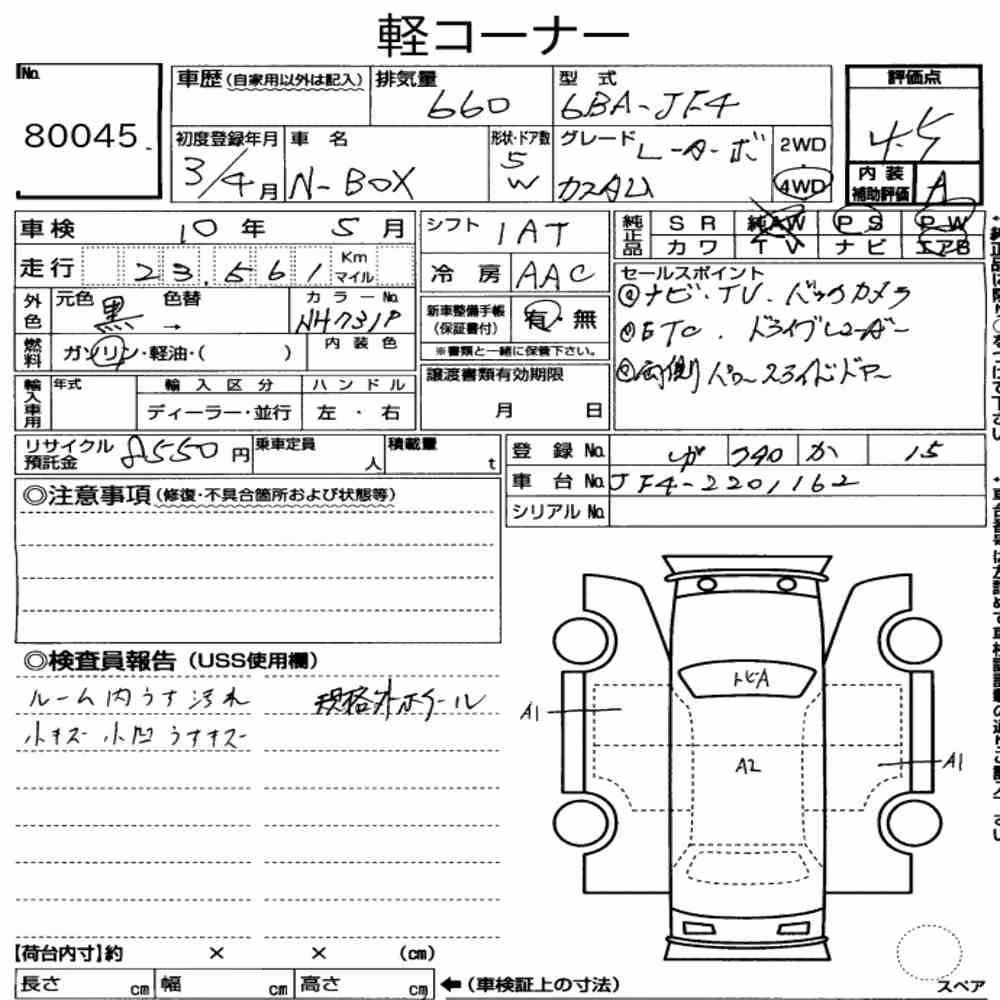 軽コーナー
No.
80045
車歴(自家用以外は記入)
排気量
660
型 式
6BA-JF4
初度登録年月
3/4月
車 名
N-BOX
形状・ドア数
5
W
グレード
L-ターボ
カスタム
2WD
・
4WD
評価点
4.5
内装
補助評価
A
車検 10年 5月
走行 23,561 Km マイル
外色
元色 黒 → 色替
カラーNo.
NH731P
燃料
ガソリン・軽油・( )
内装色
輸入車用
年式
輸入区分
ディーラー・並行
ハンドル
左 ・ 右
シフト IAT
冷房 AAC
新車整備手帳
(保証書付)
有・無
※書類と一緒に保管下さい。
譲渡書類有効期限
月 日
純正品
SR 純AW PS PW
カワ TV ナビ エアB
セールスポイント
①ナビ・TV・バックカメラ
②ETC. ドライブレコーダー
③両側パワースライドドアー
リサイクル
預託金
8550円
乗車定員
人
積載量
t
登録No. 740 か 15
車台No. JF4-2201162
シリアルNo.
◎注意事項(修復・不具合箇所および状態等)
◎検査員報告(USS使用欄)
ルーム内うす汚れ 規格外ホイール
小キズ 小凹 うすキズ
トビA
A1
A2
A1
【荷台内寸】約 × × (cm)
長さ cm 幅 cm 高さ cm
←(車検証上の寸法)
スペア